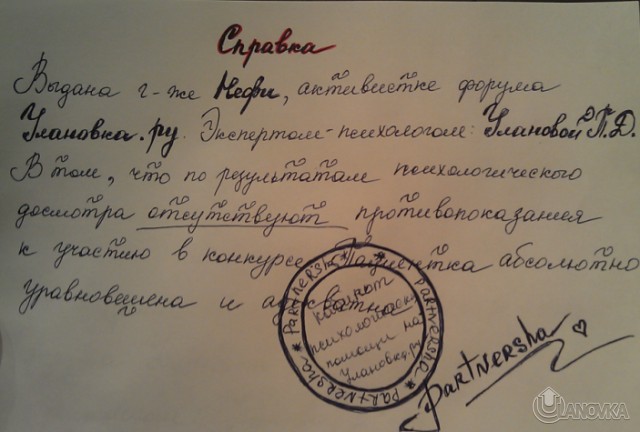 Справка
Выдана г-же Нефи, активистке форума
Улановка.ру. Экспертом-психологом: Улановой П.Д.
В том, что по результатам психологического
досмотра отсутствуют противопоказания
к участию в конкурсе. Пациентка абсолютно
уравновешена и адекватна
Partnersha * Partnersha * Partnersha *
кабинет
психологической
помощи на
Улановке.ру
Partnersha
ULANOVKA